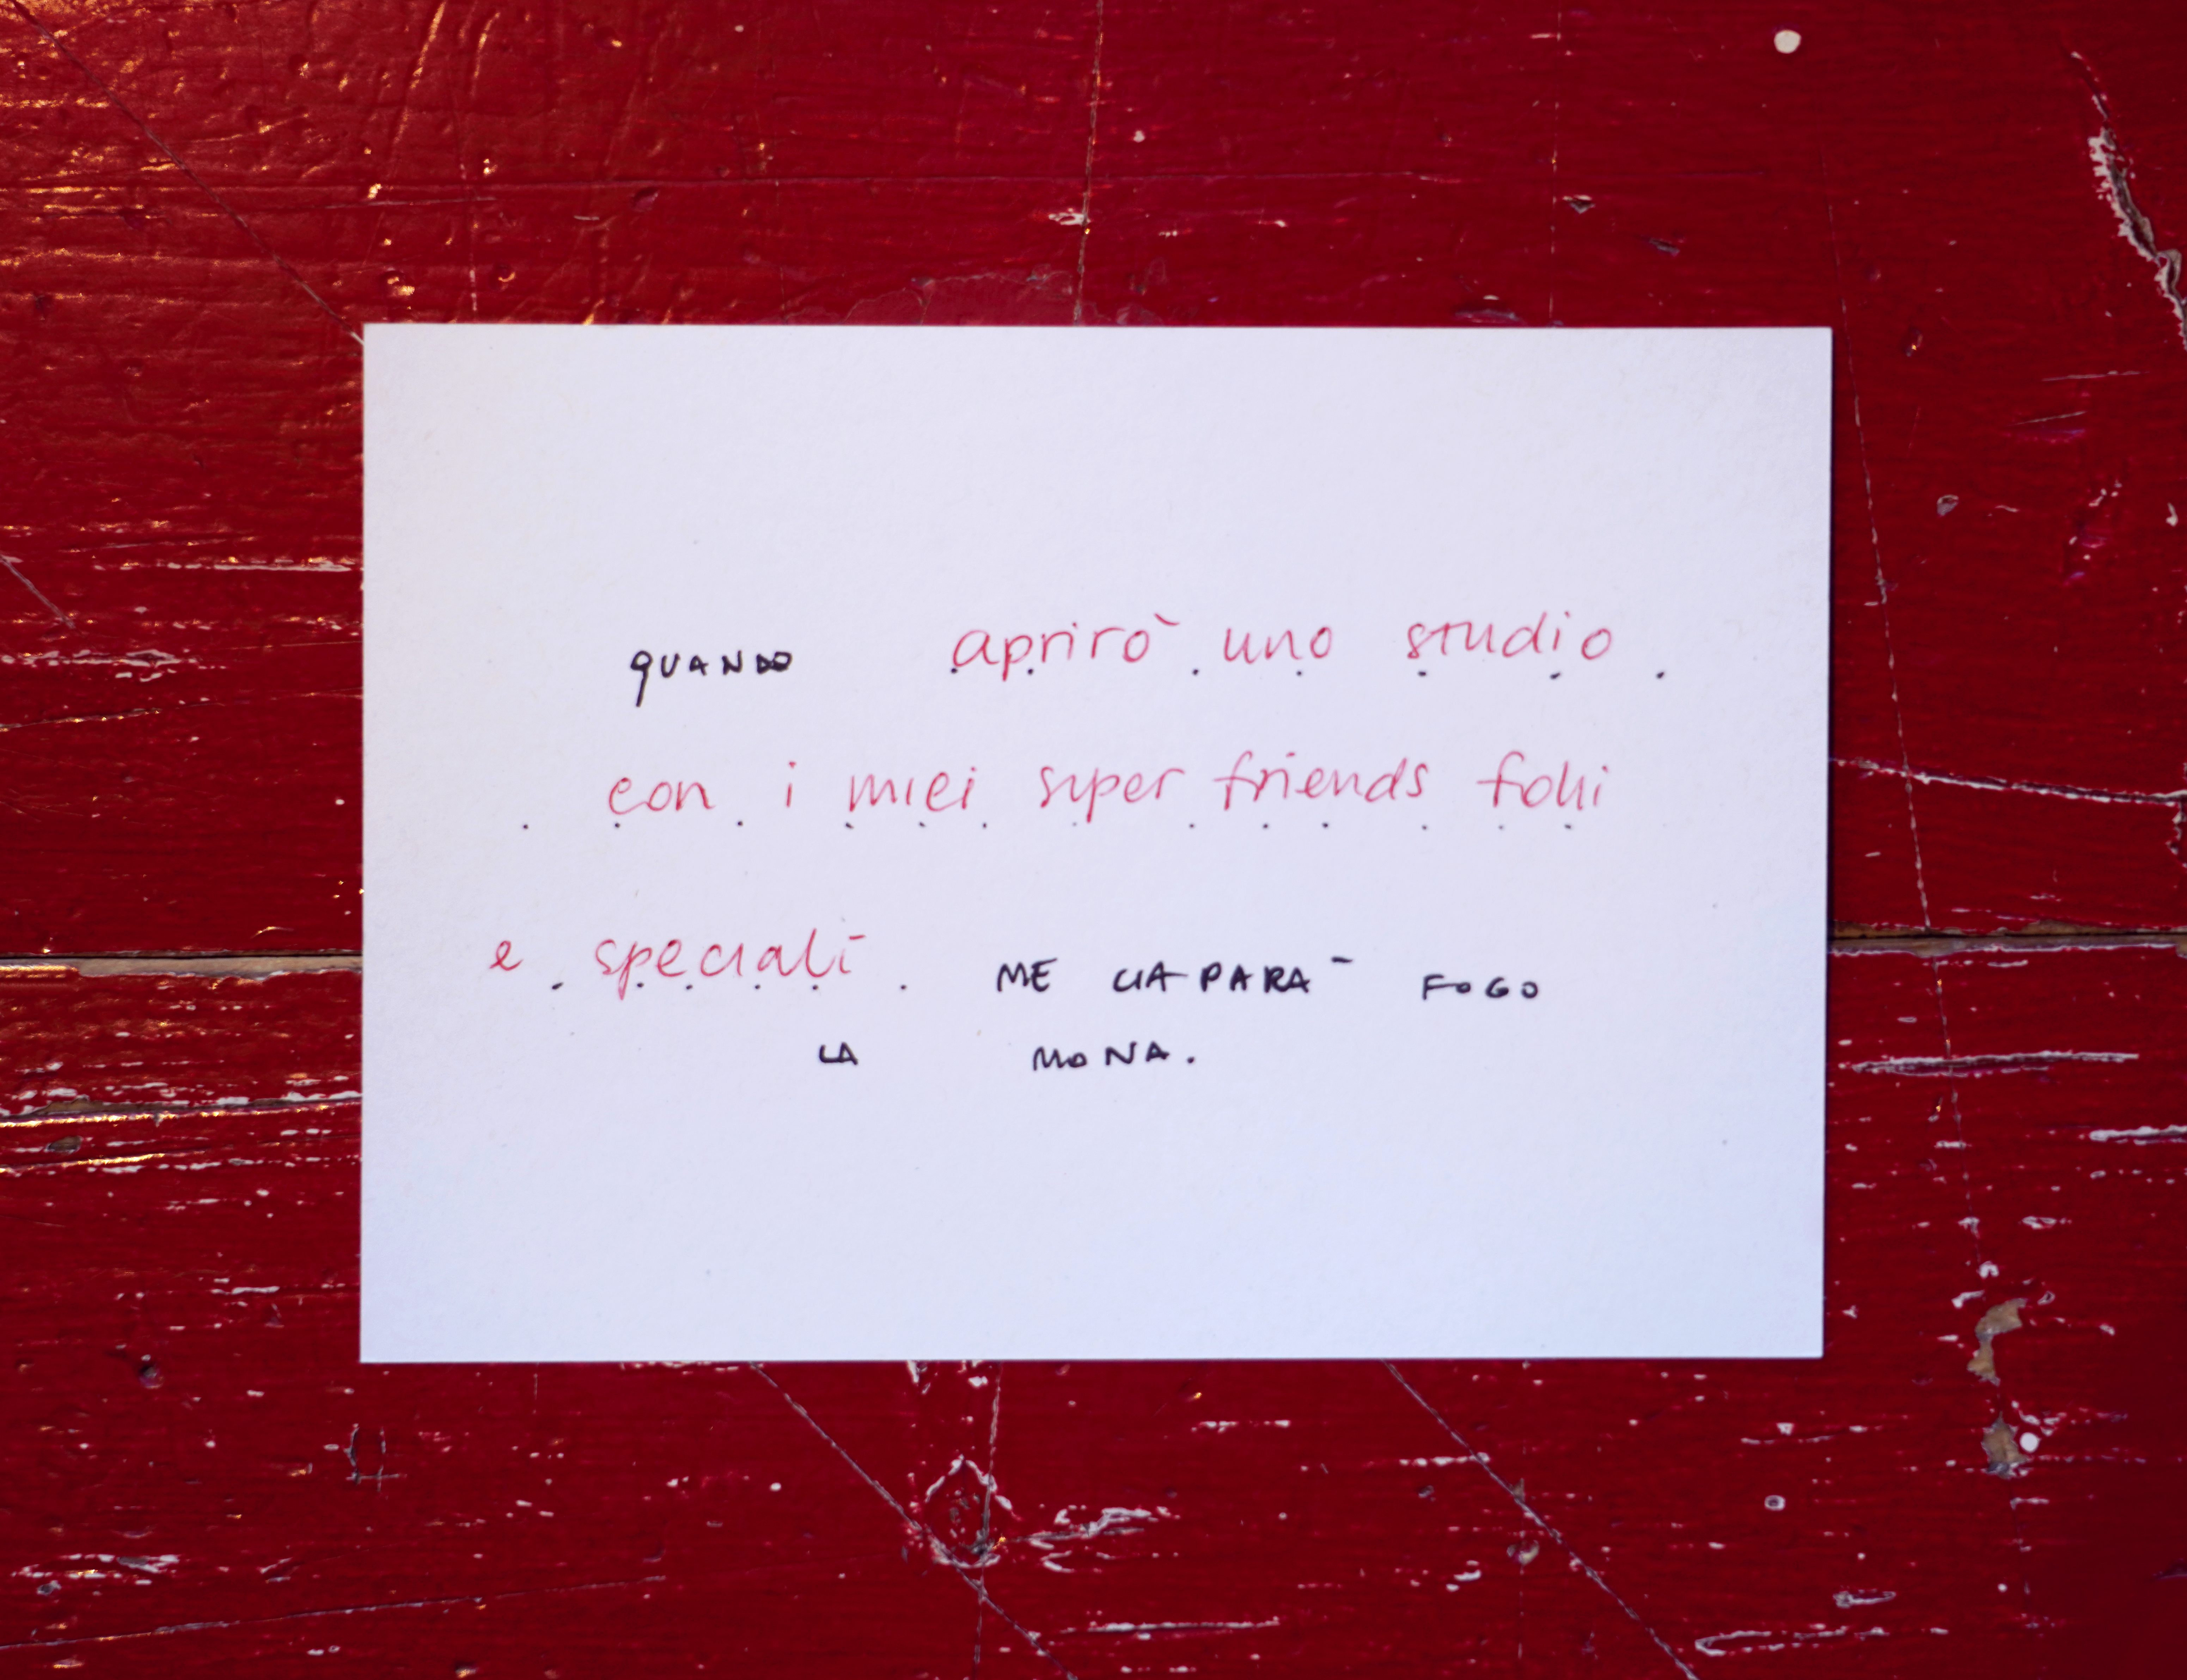 QUANDO aprirò uno studio
con i miei super friends folli
e speciali ME CIAPARÀ FOGO
LA MONA.